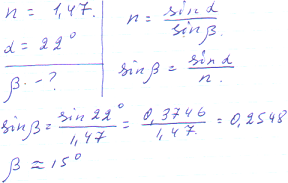 n = 1,47.
α = 22°
β - ?
n = sin α / sin β.
sin β = sin α / n.
sin β = sin 22° / 1,47 = 0,3746 / 1,47. = 0,2548
β ≈ 15°